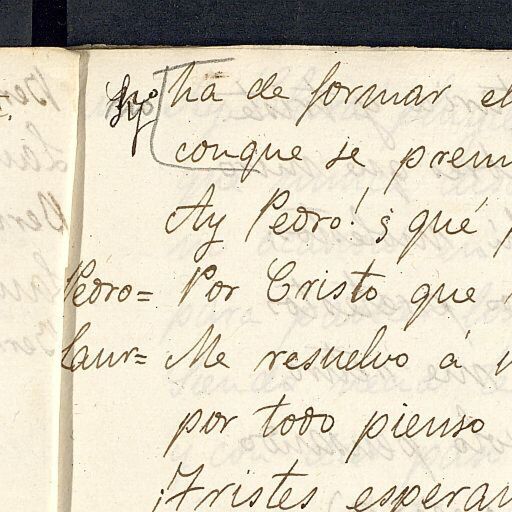 ha de formar el
conque se prem
Ay Pedro! ¿qué
Pedro= Por Cristo que
Laur= Me resuelvo á
por todo pienso
¡Tristes esperan